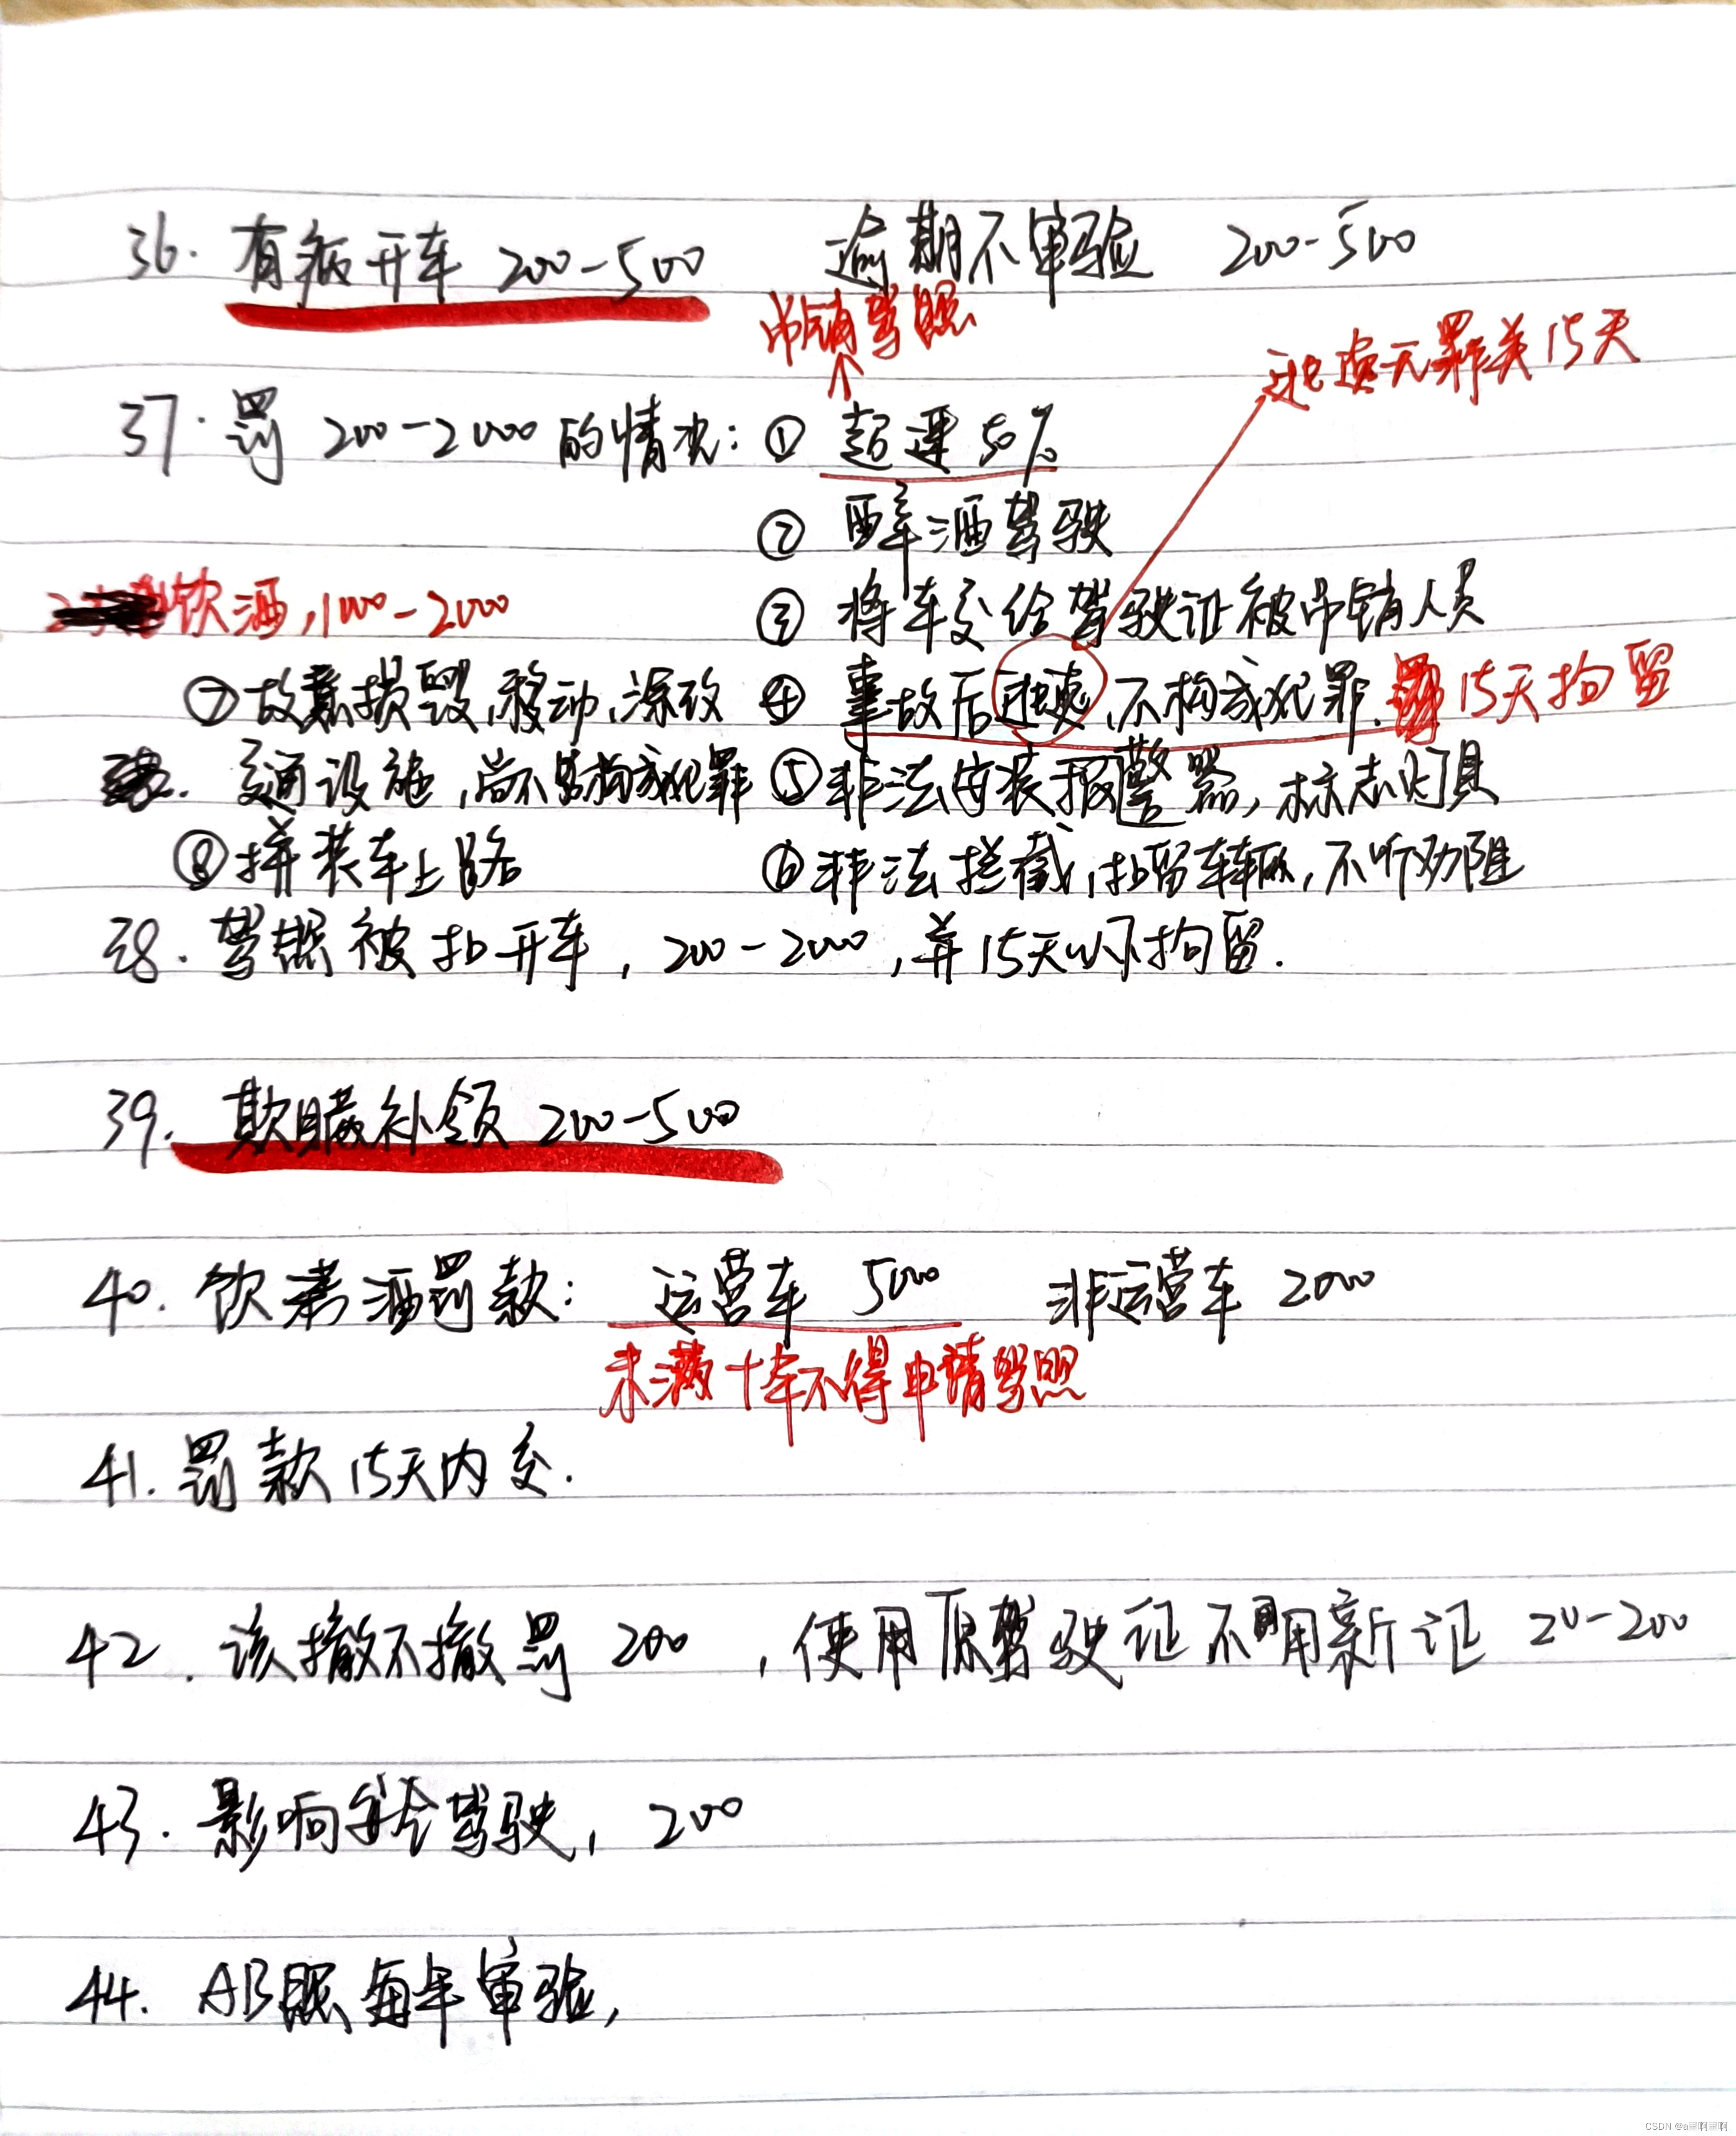 36. 有病开车 200-500 逾期不审验 200-500
吊销驾照
逃逸无罪关15天
37. 罚 200-2000的情况: ① 超速50%
② 醉酒驾驶
饮酒,1000-2000
③ 将车交给驾驶证被吊销人员
④ 事故后逃逸,不构成犯罪. 15天拘留
⑤ 非法安装报警器,标志灯具
⑥ 非法拦截,扣留车辆,不听劝阻
⑦ 故意损毁,移动,涂改
交通设施,尚不构成犯罪
⑧ 拼装车上路
38. 驾照被扣开车,200-2000,并15天以下拘留.
39. 欺瞒补领 200-500
40. 饮酒罚款: 运营车 5000 非运营车 2000
未满十年不得申请驾照
41. 罚款15天内交.
42. 该撤不撤罚 200 ,使用原驾驶证不用新证 20-200
43. 影响安全驾驶, 200
44. AB照每年审验,
CSDN @a里啊里啊